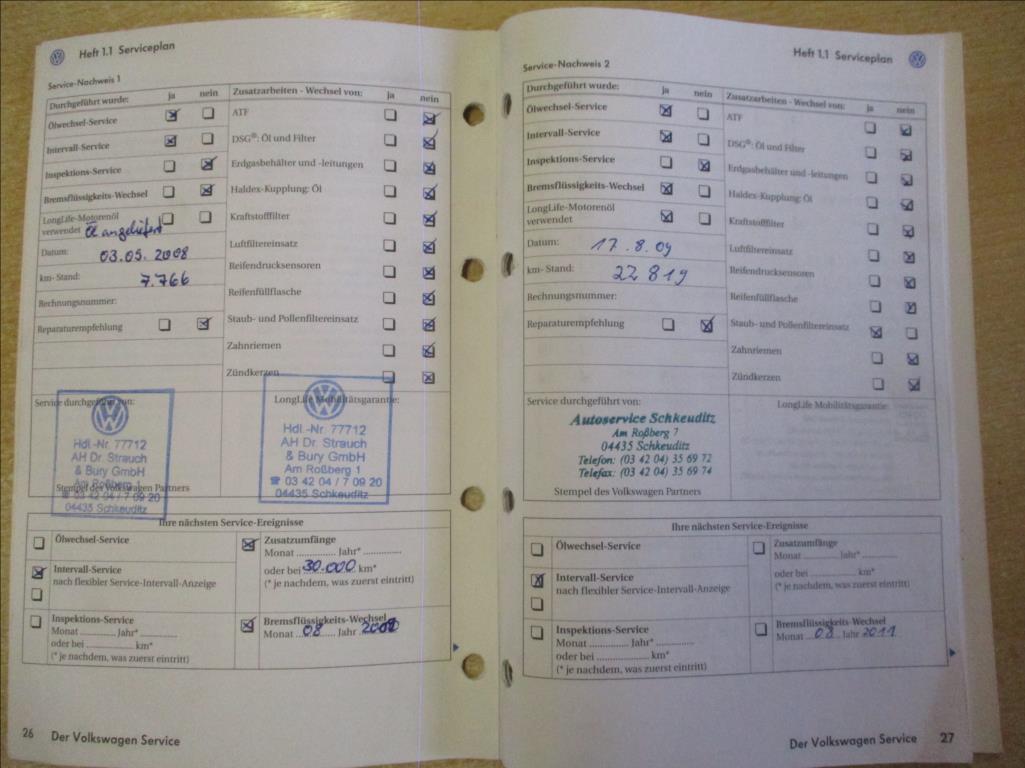 Heft 1.1 Serviceplan
Service-Nachweis 1
Durchgeführt wurde: ja nein
Ölwechsel-Service
Intervall-Service
Inspektions-Service
Bremsflüssigkeits-Wechsel
LongLife-Motorenöl
verwendet Öl angeliefert
Datum: 03.05.2008
km-Stand: 7.766
Rechnungsnummer:
Reparaturempfehlung
Zusatzarbeiten - Wechsel von: ja nein
ATF
DSG®: Öl und Filter
Erdgasbehälter und -leitungen
Haldex-Kupplung: Öl
Kraftstofffilter
Luftfiltereinsatz
Reifendrucksensoren
Reifenfüllflasche
Staub- und Pollenfiltereinsatz
Zahnriemen
Zündkerzen
Service durchgeführt von:
Hdl.-Nr. 77712
AH Dr. Strauch
& Bury GmbH
Am Roßberg 1
☎ 03 42 04 / 7 09 20
04435 Schkeuditz
Stempel des Volkswagen Partners
LongLife Mobilitätsgarantie:
Hdl.-Nr. 77712
AH Dr. Strauch
& Bury GmbH
Am Roßberg 1
☎ 03 42 04 / 7 09 20
04435 Schkeuditz
Ihre nächsten Service-Ereignisse
Ölwechsel-Service
Intervall-Service
nach flexibler Service-Intervall-Anzeige
Inspektions-Service
Monat ............ Jahr* ............
oder bei .................... km*
(* je nachdem, was zuerst eintritt)
Zusatzumfänge
Monat ............ Jahr* ............
oder bei 30.000 km*
(* je nachdem, was zuerst eintritt)
Bremsflüssigkeits-Wechsel
Monat 08 Jahr
26 Der Volkswagen Service
Heft 1.1 Serviceplan
Service-Nachweis 2
Durchgeführt wurde: ja nein
Ölwechsel-Service
Intervall-Service
Inspektions-Service
Bremsflüssigkeits-Wechsel
LongLife-Motorenöl
verwendet
Datum: 17.8.09
km- Stand: 22 819
Rechnungsnummer:
Reparaturempfehlung
Zusatzarbeiten - Wechsel von: ja nein
ATF
DSG®: Öl und Filter
Erdgasbehälter und -leitungen
Haldex-Kupplung: Öl
Kraftstofffilter
Luftfiltereinsatz
Reifendrucksensoren
Reifenfüllflasche
Staub- und Pollenfiltereinsatz
Zahnriemen
Zündkerzen
Service durchgeführt von:
Autoservice Schkeuditz
Am Roßberg 7
04435 Schkeuditz
Telefon: (03 42 04) 35 69 72
Telefax: (03 42 04) 35 69 74
Stempel des Volkswagen Partners
LongLife Mobilitätsgarantie:
Ihre nächsten Service-Ereignisse
Ölwechsel-Service
Intervall-Service
nach flexibler Service-Intervall-Anzeige
Inspektions-Service
Monat ............ Jahr* ............
oder bei .................... km*
(* je nachdem, was zuerst eintritt)
Zusatzumfänge
Monat ............ Jahr* ............
oder bei .................... km*
(* je nachdem, was zuerst eintritt)
Bremsflüssigkeits-Wechsel
Monat 08 Jahr 2011
Der Volkswagen Service 27